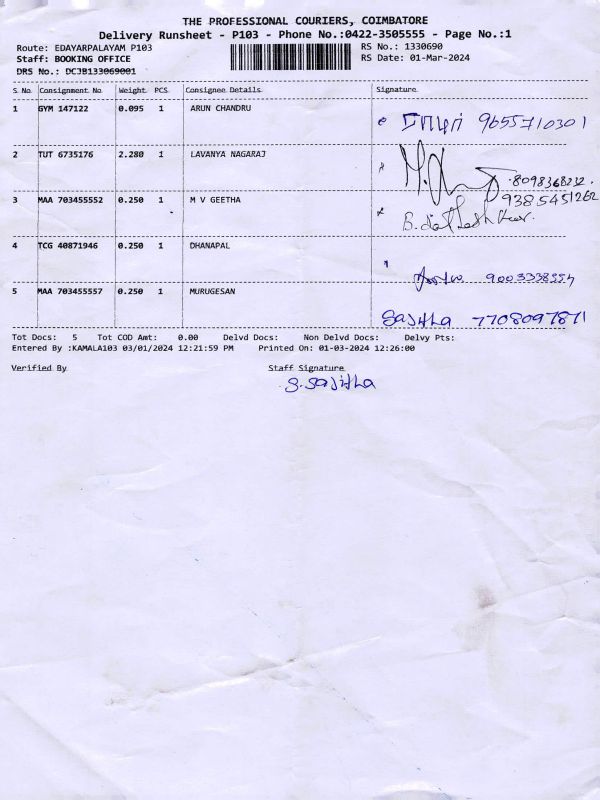 THE PROFESSIONAL COURIERS, COIMBATORE
Delivery Runsheet - P103 - Phone No.:0422-3505555 - Page No.:1
Route: EDAYARPALAYAM P103 RS No.: 1330690
Staff: BOOKING OFFICE RS Date: 01-Mar-2024
DRS No.: DCJB133069001
S No Consignment No Weight PCS Consignee Details Signature
1 GYM 147122 0.095 1 ARUN CHANDRU
9655710301
2 TUT 6735176 2.280 1 LAVANYA NAGARAJ
8098368232.
3 MAA 703455552 0.250 1 M V GEETHA 9385451262
4 TCG 40871946 0.250 1 DHANAPAL
9003338554
5 MAA 703455557 0.250 1 MURUGESAN
Sajitha 7708097871
Tot Docs: 5 Tot COD Amt: 0.00 Delvd Docs: Non Delvd Docs: Delvy Pts:
Entered By :KAMALA103 03/01/2024 12:21:59 PM Printed On: 01-03-2024 12:26:00
Verified By Staff Signature
S. Sajitha